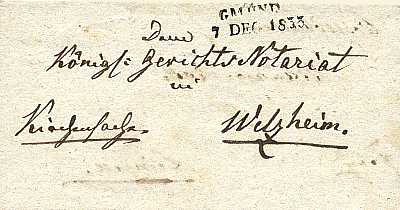 GMÜND
7 DEC 1833
Dem
Königl: Gerichts Notariat
in
Kirchensache. Welzheim.